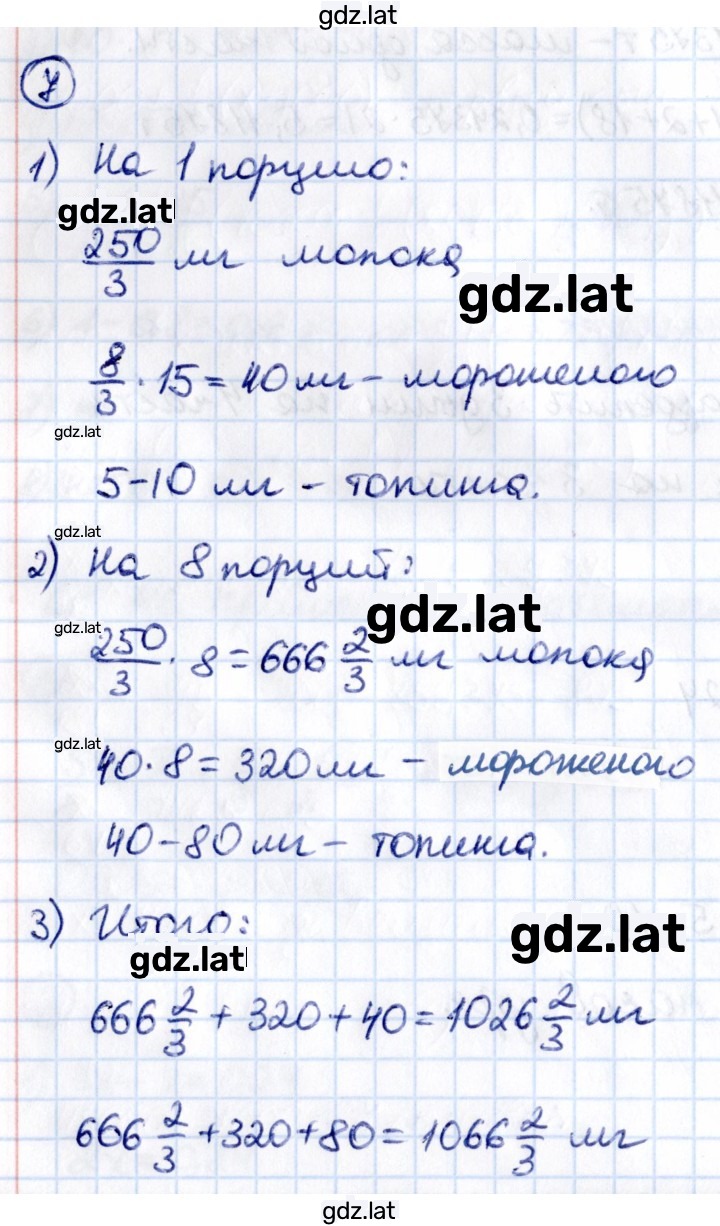 gdz.lat
7
1) На 1 порцию:
gdz.lat
250/3 мг молока
gdz.lat
8/3 · 15 = 40 мг - мороженого
gdz.lat
5-10 мг - топинга.
gdz.lat
2) На 8 порций:
gdz.lat
gdz.lat
250/3 · 8 = 666 2/3 мг молока
gdz.lat
40 · 8 = 320 мг - мороженого
40-80 мг - топинга.
3) Итого:
gdz.lat
gdz.lat
666 2/3 + 320 + 40 = 1026 2/3 мг
666 2/3 + 320 + 80 = 1066 2/3 мг
gdz.lat